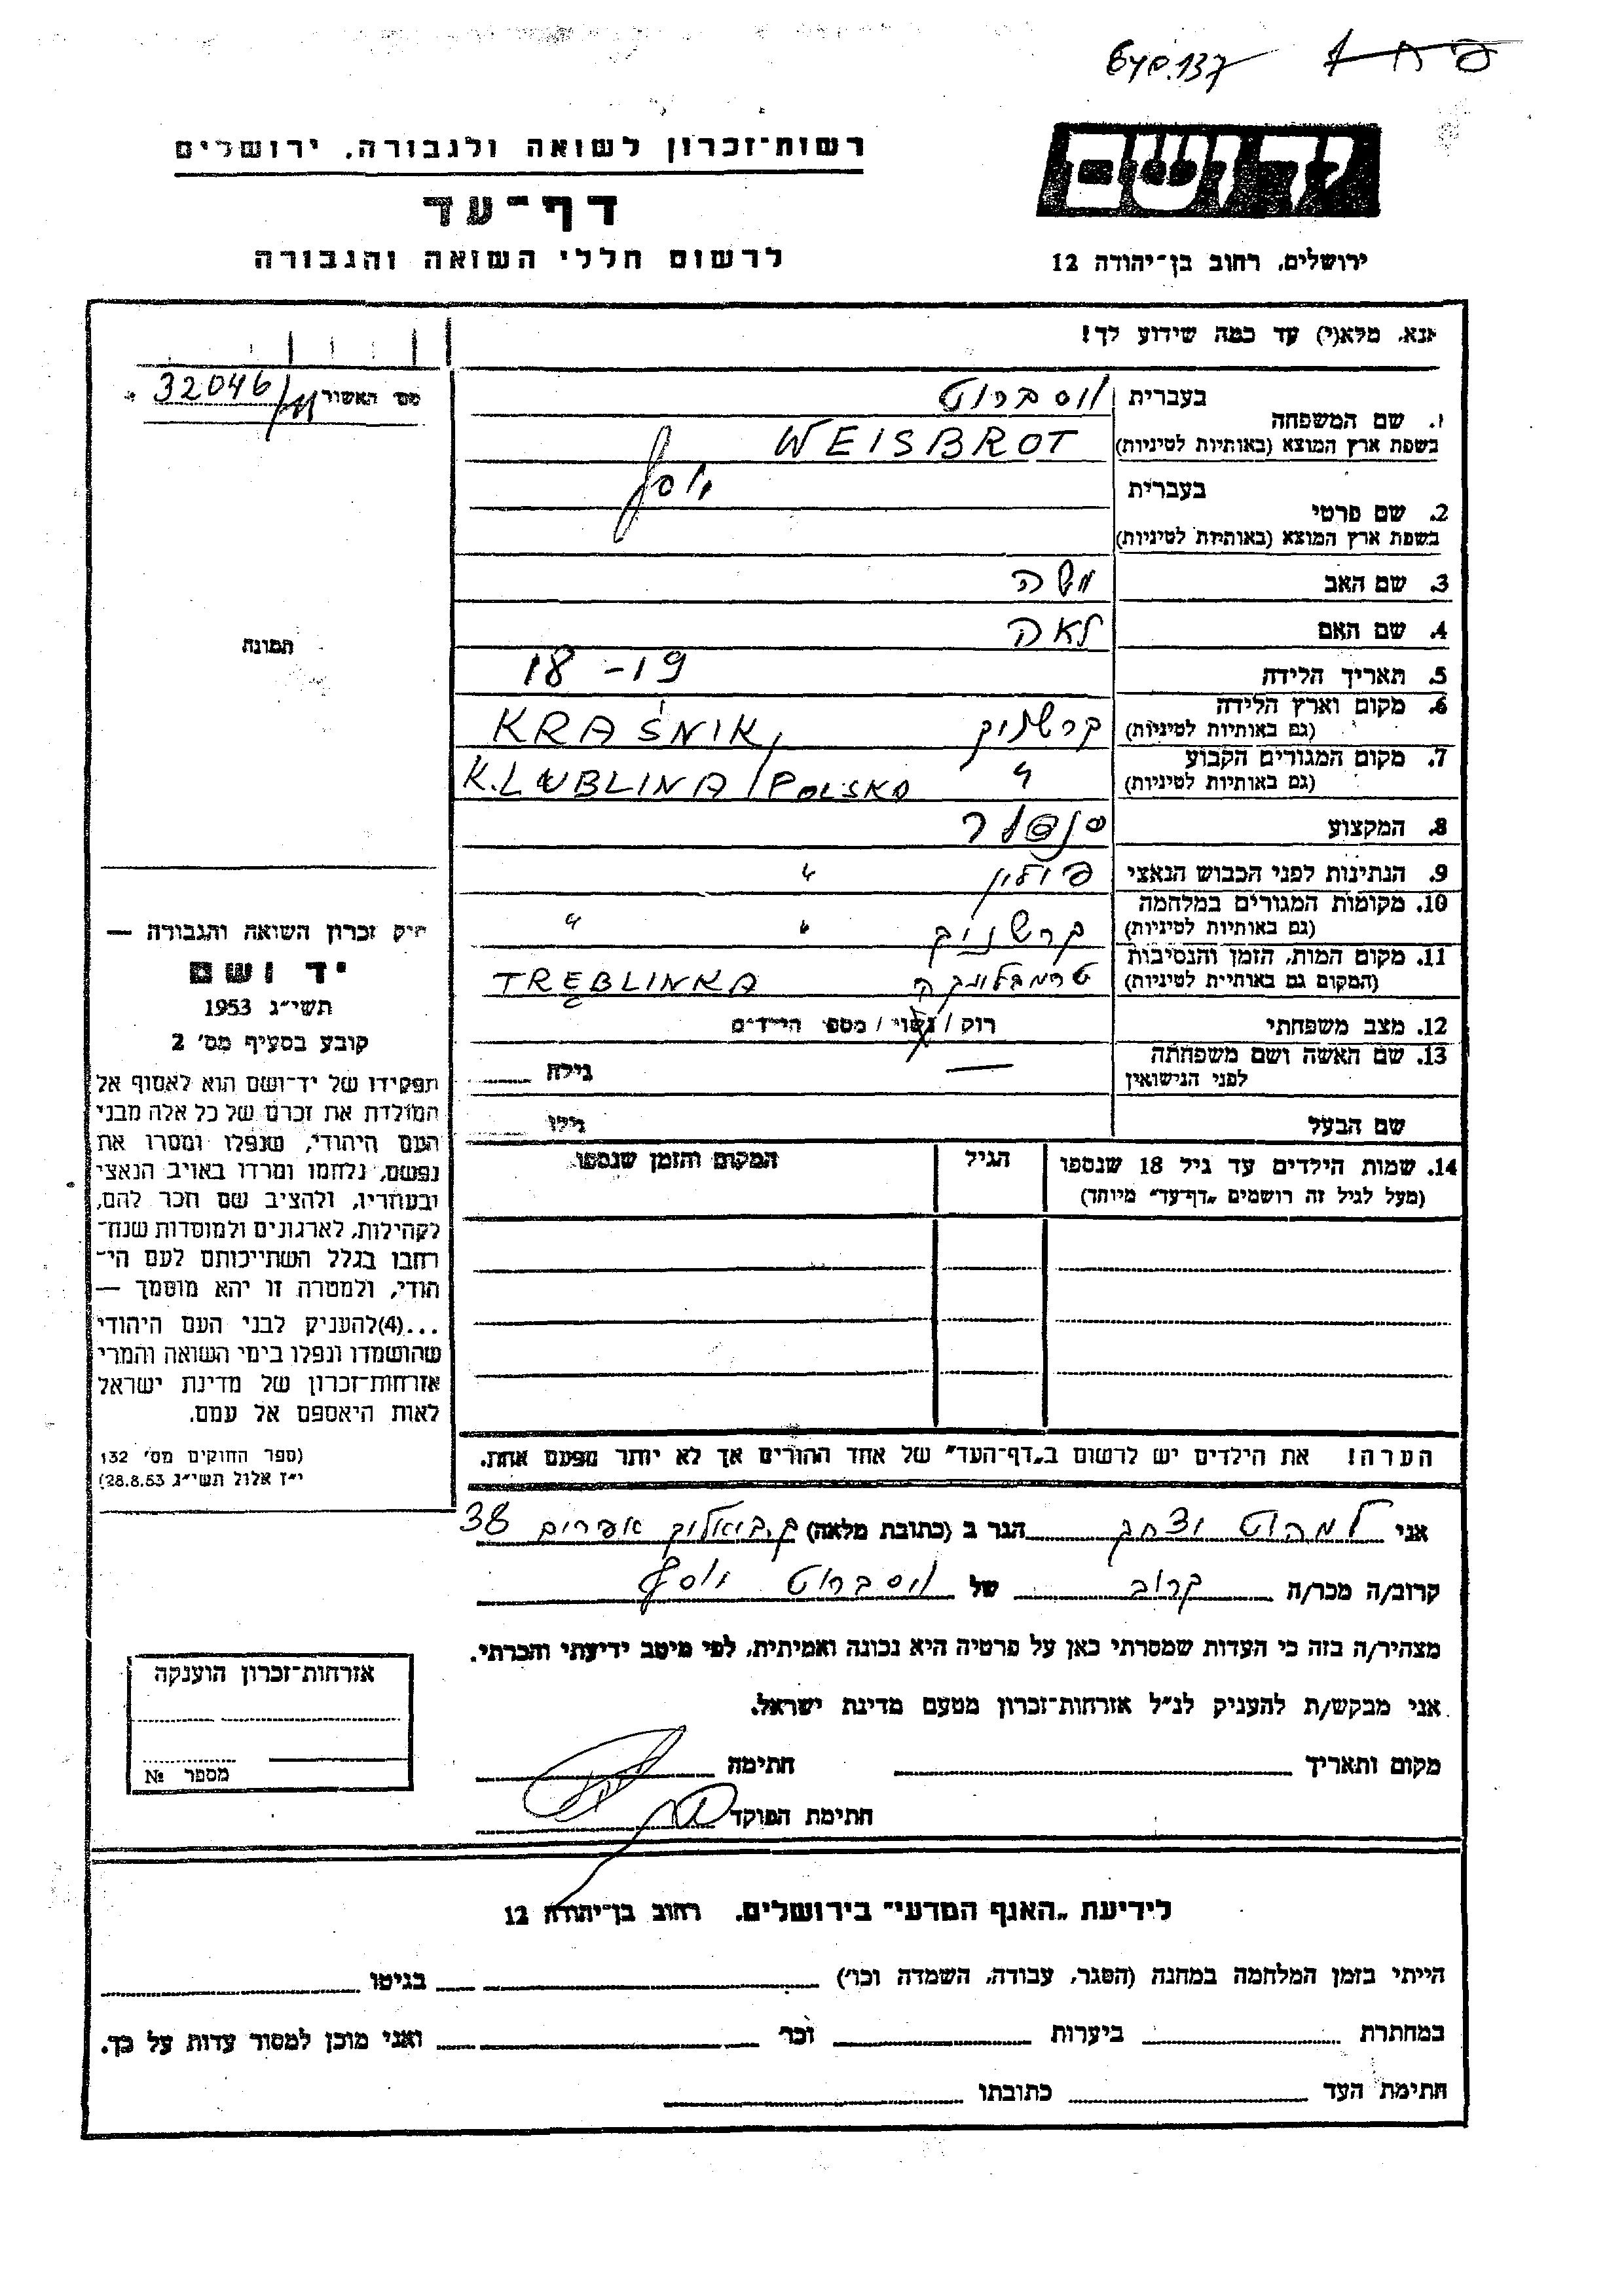 רשות־זכרון לשואה ולגבורה, ירושלים
דף־עד
לרשום חללי השואה והגבורה
ירושלים, רחוב בן־יהודה 12
אנא, מלא(י) עד כמה שידוע לך!
מס׳ האשור 32046
1. שם המשפחה בעברית וייסברוט
בשפת ארץ המוצא (באותיות לטיניות) WEISBROT
2. שם פרטי בעברית יוסף
בשפת ארץ המוצא (באותיות לטיניות)
3. שם האב משה
4. שם האם לאה
5. תאריך הלידה 18 - 19
6. מקום וארץ הלידה קרשניק KRAŚNIK,
(גם באותיות לטיניות)
7. מקום המגורים הקבוע " K. LUBLINA / POLSKA
(גם באותיות לטיניות)
8. המקצוע
9. הנתינות לפני הכבוש הנאצי פולין "
10. מקומות המגורים במלחמה קרשניק " "
(גם באותיות לטיניות)
11. מקום המות, הזמן והנסיבות טרמבלינקה TREBLINKA
(המקום גם באותיות לטיניות)
12. מצב משפחתי רוק / נשוי / מספר הילדים
13. שם האשה ושם משפחתה — גילה
לפני הנישואין
שם הבעל גילו
14. שמות הילדים עד גיל 18 שנספו הגיל המקום והזמן שנספו
(מעל לגיל זה רושמים „דף־עד״ מיוחד)
הערה! את הילדים יש לרשום ב„דף־העד״ של אחד ההורים אך לא יותר מפעם אחת.
תמונה
חוק זכרון השואה והגבורה —
יד ושם
תשי״ג 1953
קובע בסעיף מס׳ 2
תפקידו של יד־ושם הוא לאסוף אל
המולדת את זכרם של כל אלה מבני
העם היהודי, שנפלו ומסרו את
נפשם, נלחמו ומרדו באויב הנאצי
ובעוזריו, ולהציב שם וזכר להם,
לקהילות, לארגונים ולמוסדות שנח־
רבו בגלל השתייכותם לעם הי־
הודי, ולמטרה זו יהא מוסמך —
...(4)להעניק לבני העם היהודי
שהושמדו ונפלו בימי השואה והמרי
אזרחות־זכרון של מדינת ישראל
לאות היאספם אל עמם.
(ספר החוקים מס׳ 132
י״ז אלול תשי״ג 28.8.53)
אני יצחק הגר ב (כתובת מלאה) ק. ביאליק אפרים 38
קרוב/ה מכר/ה קרוב של וייסברוט יוסף
מצהיר/ה בזה כי העדות שמסרתי כאן על פרטיה היא נכונה ואמיתית, לפי מיטב ידיעתי והכרתי.
אני מבקש/ת להעניק לנ״ל אזרחות־זכרון מטעם מדינת ישראל.
מקום ותאריך חתימה
חתימת הפוקד
אזרחות־זכרון הוענקה
מספר №
לידיעת „האגף המדעי״ בירושלים, רחוב בן־יהודה 12
הייתי בזמן המלחמה במחנה (הסגר, עבודה, השמדה וכו׳) בגיטו
במחתרת ביערות וכו׳ ואני מוכן למסור עדות על כך.
חתימת העד כתובתו